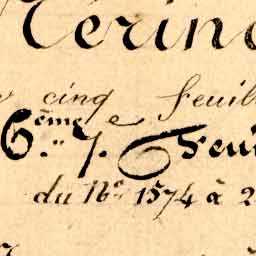 Mérin
cinq feuil
6ème 7. e Feui
du No 1574 à 2